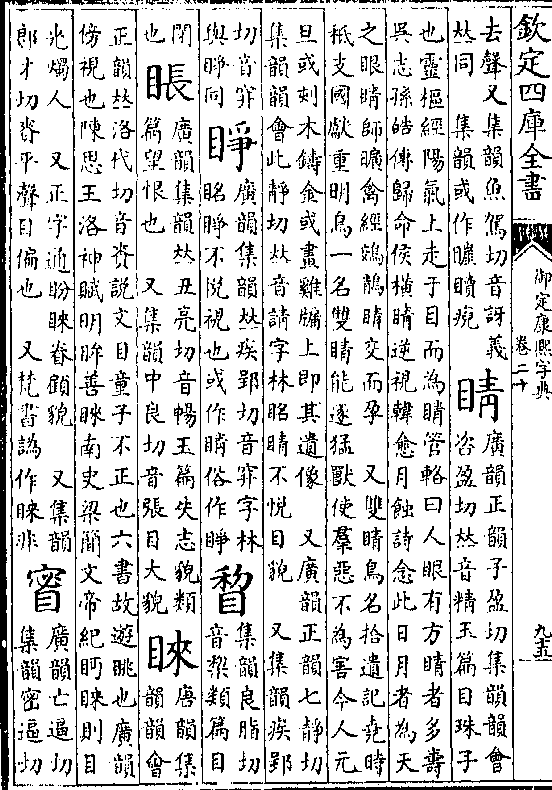 欽定四庫全書
御定康熙字典
卷二十
九五
去聲又集韻魚駕切音訝義
𠀤同　集韻或作
睛
廣韻正韻子盈切集韻韻會
咨盈切𠀤音精玉篇目珠子
也靈樞經陽氣上走于目而為睛管輅曰人眼有方睛者多壽
吳志孫皓傳歸命侯橫睛逆視韓愈月蝕詩念此日月者為天
之眼睛師曠禽經鵁鶄睛交而孕　又雙睛鳥名拾遺記堯時
秪支國獻重明鳥一名雙睛能逐猛獸使羣惡不為害今人元
旦或刻木鑄金或畫雞牖上即其遺像　又廣韻正韻七靜切
集韻韻會此靜切𠀤音請字林䀼睛不悅目貌　又集韻疾郢
切音穽
與睜同
睜
廣韻集韻𠀤疾郢切音穽字林
䀼睜不悅視也或作睛俗作睜
集韻良脂切
音棃類篇目
閉
也
廣韻集韻𠀤丑亮切音暢玉篇失志貌類
篇望恨也　又集韻中良切音張目大貌
睞
唐韻集
韻韻會
正韻𠀤洛代切音賚說文目童子不正也六書故遊眺也廣韻
傍視也陳思王洛神賦明眸善睞南史梁簡文帝紀眄睞則目
光燭人　又正字通盼睞眷顧貌　又集韻
郎才切賚平聲目偏也　又梵書譌作睞非
廣韻亡逼切
集韻密逼切